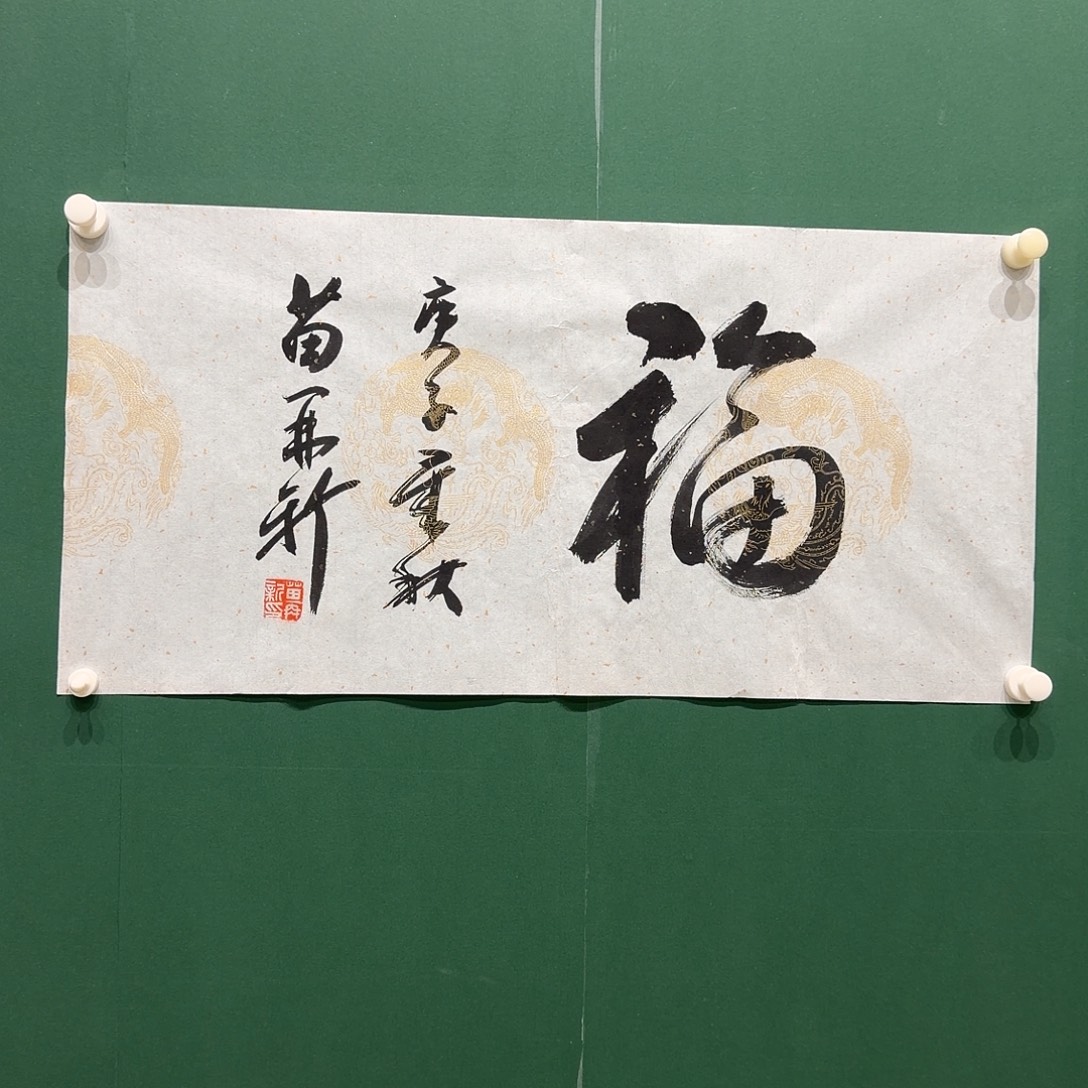 福
庚子季秋
苗再新
苗再新印